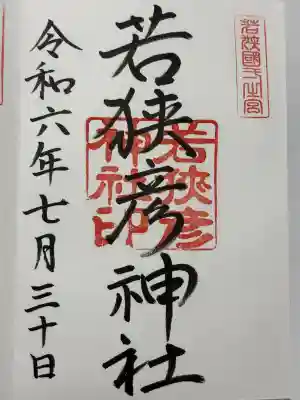 若狭國一之宮
若狭彦神社
若狭彦神社印
令和六年七月三十日